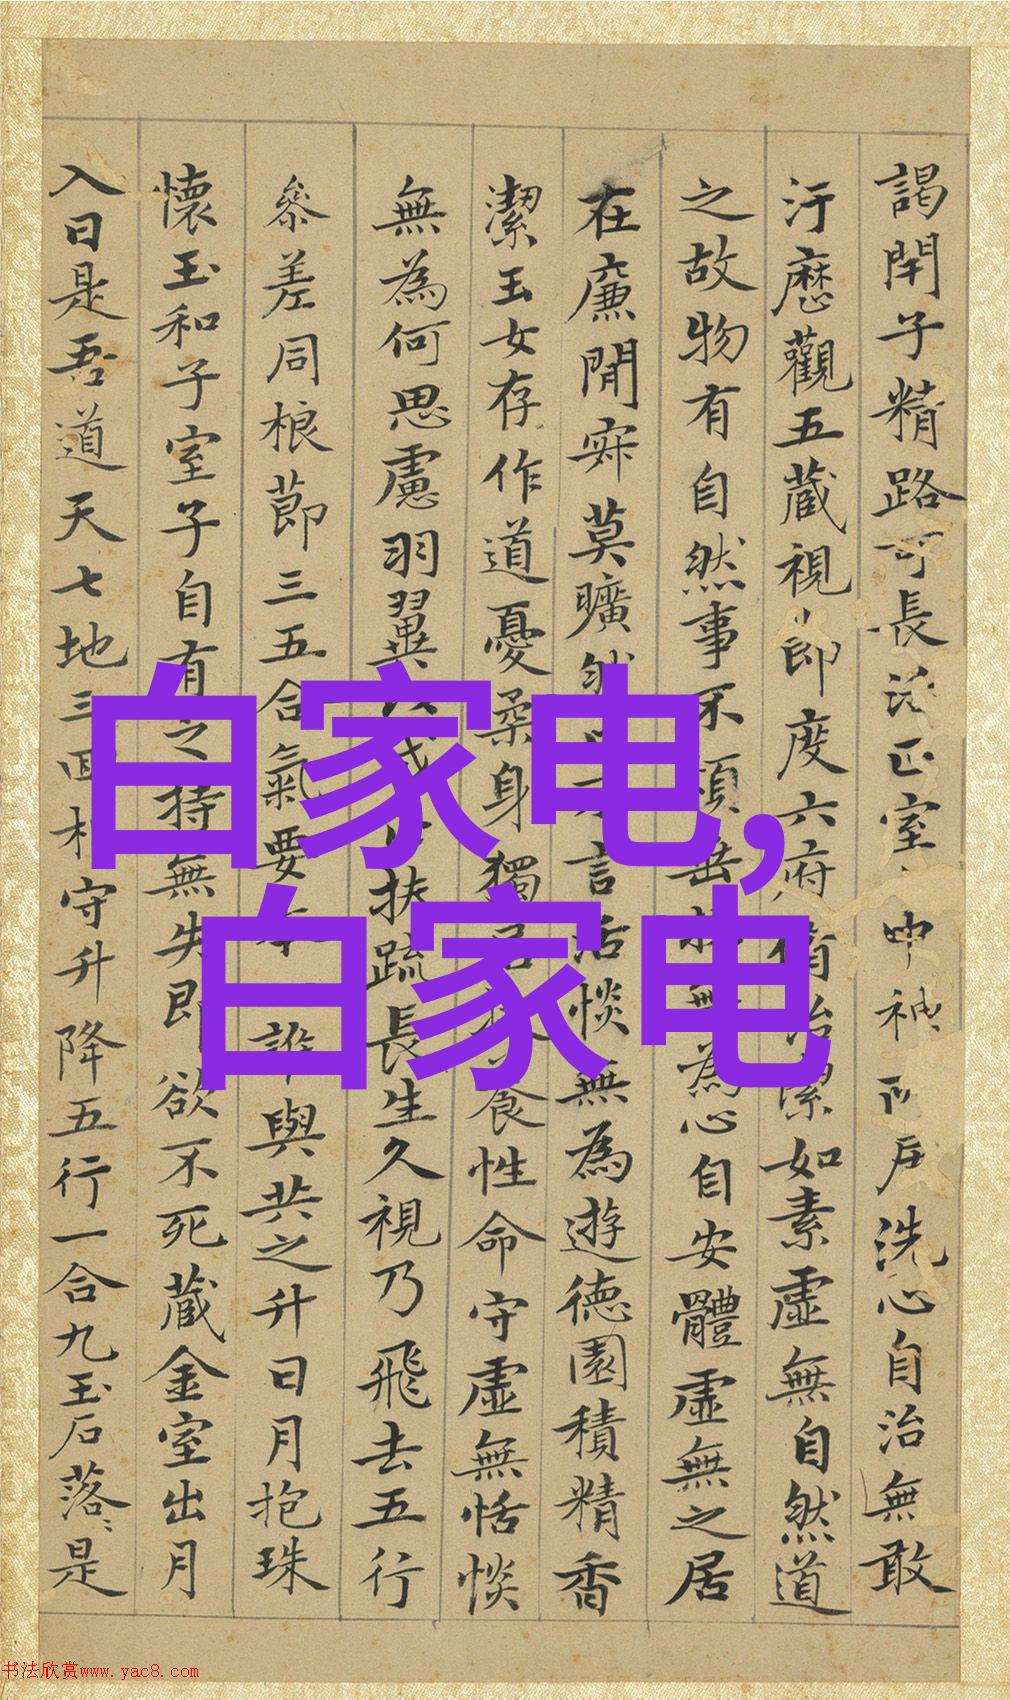 謁閇子精路可長活正室中神門戶洗心自治無敢
汙歷觀五藏視節度六府脩治潔如素虛無自然道
之故物有自然事不煩垂拱無為心自安體虛無之居
在廉閒寂莫曠然口不言恬惔無為遊德園積精香
潔玉女存作道憂柔身獨居扶養性命守虛無恬惔
無為何思慮羽翼以成正扶疏長生久視乃飛去五行
參差同根莭三五合氣要本一誰與共之升日月抱珠
懷玉和子室子自有之持無失即欲不死藏金室出月
入日是吾道天七地三回相守升降五行一合九玉石落〻是
白家电,
白家电
书法欣赏www.yac8.com